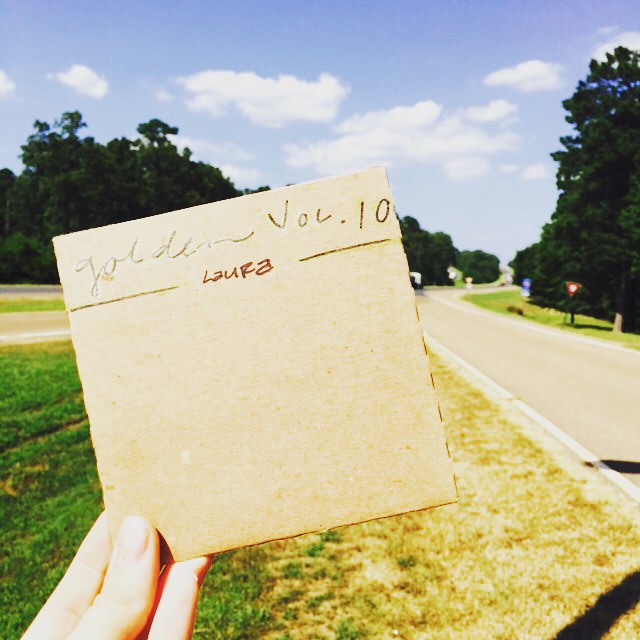 golden Vol. 10
Laura